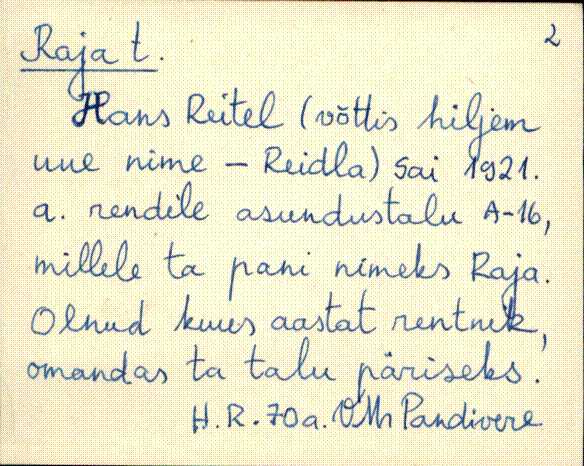 Raja t. 2
Hans Reitel (võttis hiljem
uue nime – Reidla) sai 1921.
a. rendile asundustalu A-16,
millele ta pani nimeks Raja.
Olnud kuus aastat rentnik,
omandas ta talu päriseks.
H.R. 70 a. VMr Pandivere